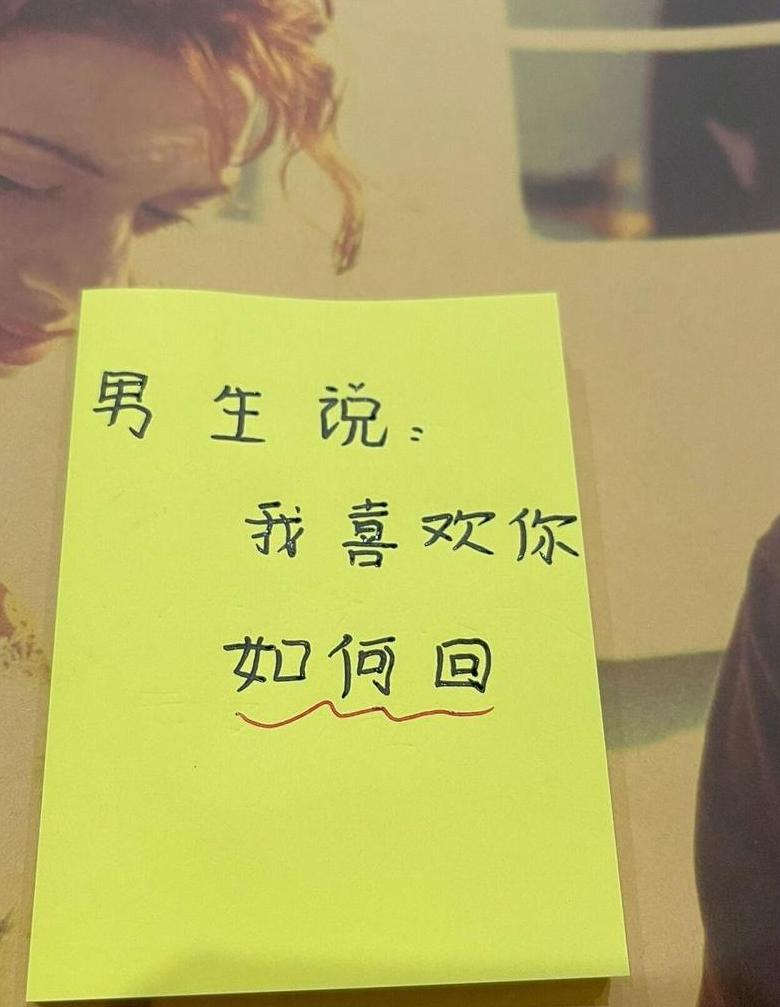 男生说：
我喜欢你
如何回